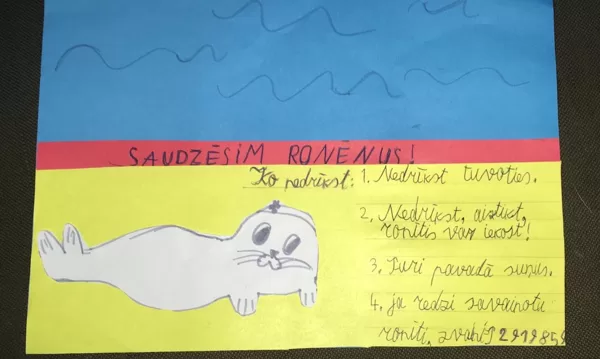 SAUDZĒSIM RONĒNUS!
Ko nedrīkst:
1. Nedrīkst tuvoties.
2. Nedrīkst, aiztikt,
ronītis var iekost!
3. Turi pavadā suņus.
4. ja redzi savainotu
ronīti, zvani!